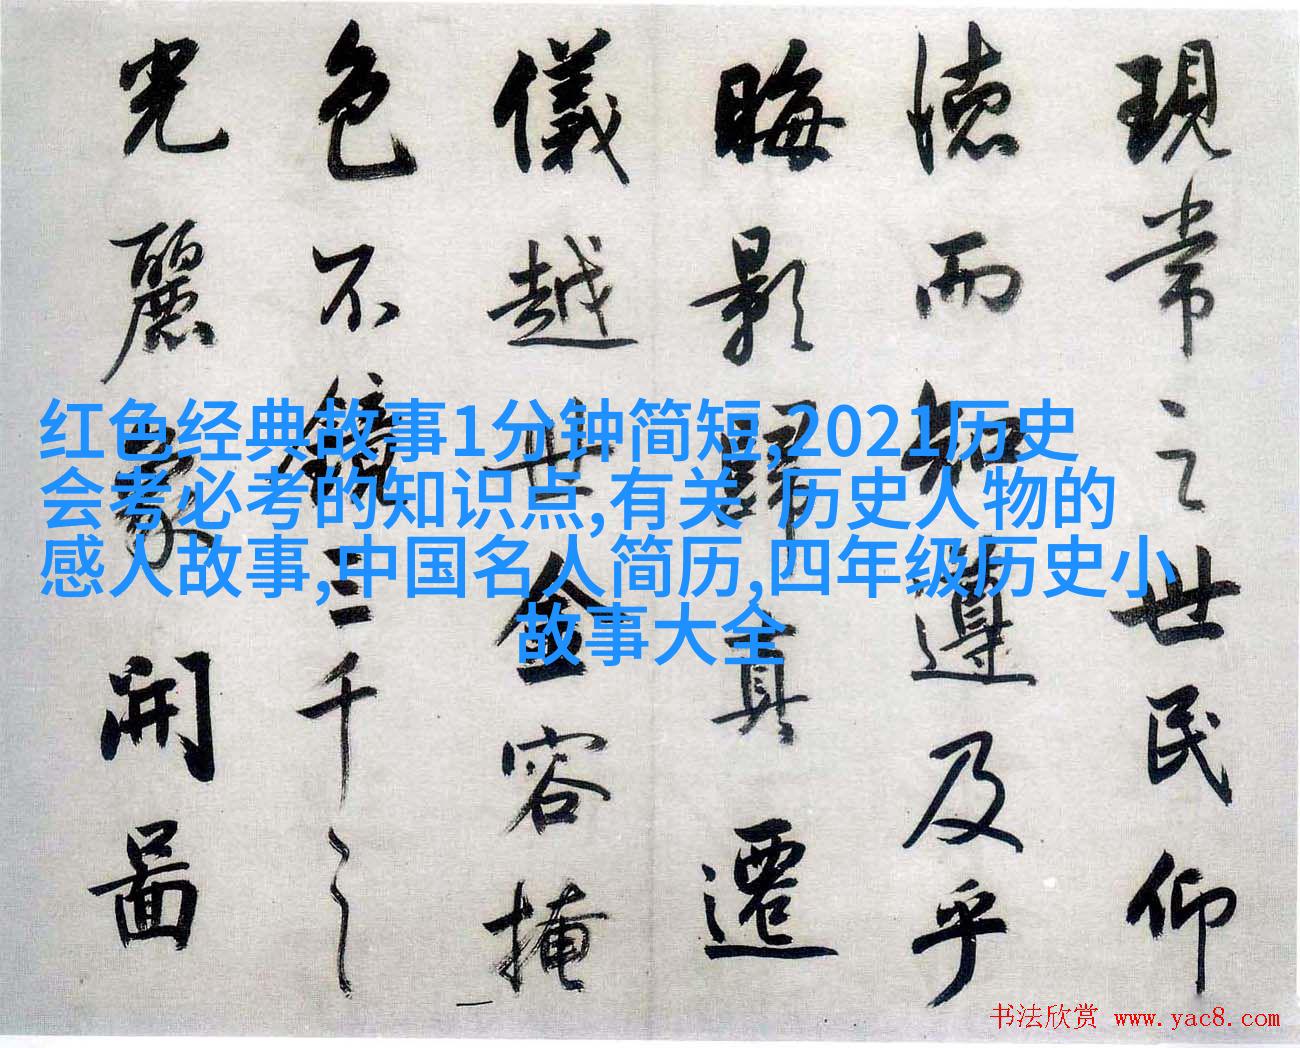 红色经典故事1分钟简短,2021历史
会考必考的知识点,有关 历史人物的
感人故事,中国名人简历,四年级历史小
故事大全
現常之世民仰
德而知遵及乎
晦影歸真遷
儀越世金容掩
色不鏡三千之
光麗象開圖
书法欣赏 www.yac8.com